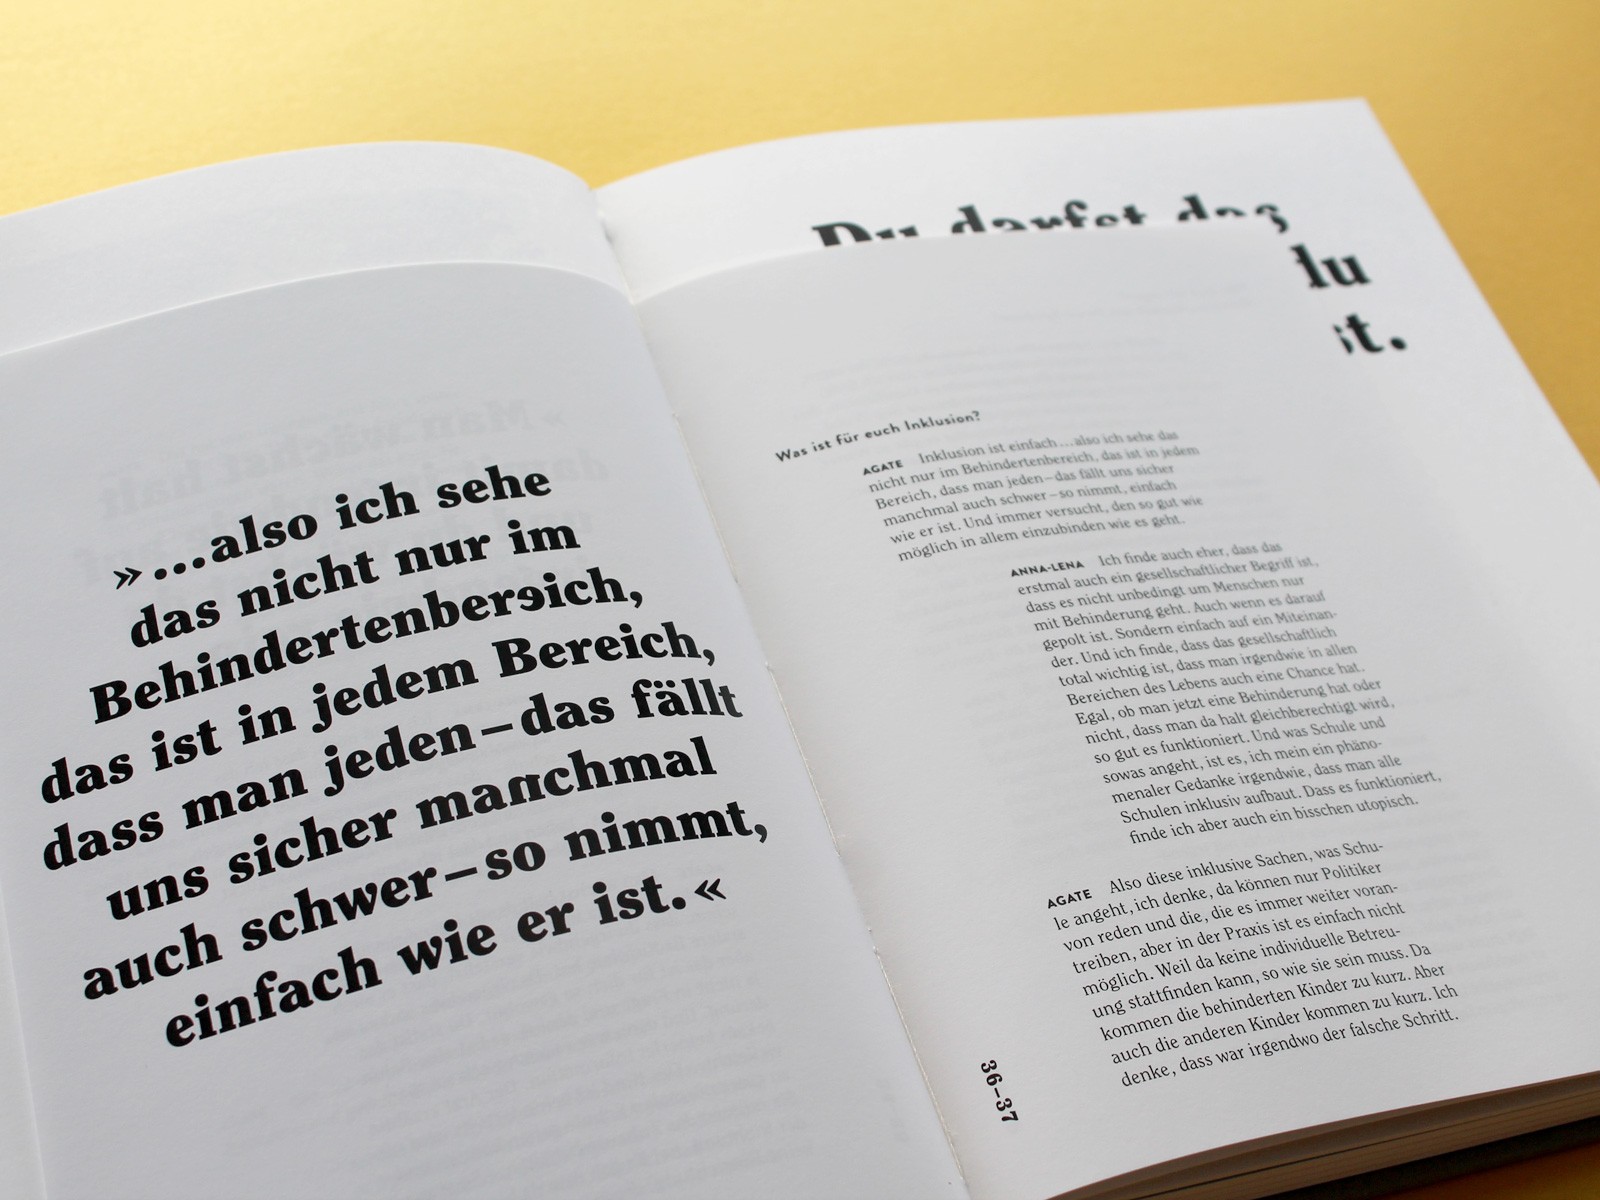 »...also ich sehe
das nicht nur im
Behindertenbereich,
das ist in jedem Bereich,
dass man jeden–das fällt
uns sicher manchmal
auch schwer–so nimmt,
einfach wie er ist.«
Du darfst das
du
st.
Was ist für euch Inklusion?
AGATE Inklusion ist einfach...also ich sehe das
nicht nur im Behindertenbereich, das ist in jedem
Bereich, dass man jeden–das fällt uns sicher
manchmal auch schwer–so nimmt, einfach
wie er ist. Und immer versucht, den so gut wie
möglich in allem einzubinden wie es geht.
ANNA-LENA Ich finde auch eher, dass das
erstmal auch ein gesellschaftlicher Begriff ist,
dass es nicht unbedingt um Menschen nur
mit Behinderung geht. Auch wenn es darauf
gepolt ist. Sondern einfach auf ein Miteinan-
der. Und ich finde, dass das gesellschaftlich
total wichtig ist, dass man irgendwie in allen
Bereichen des Lebens auch eine Chance hat.
Egal, ob man jetzt eine Behinderung hat oder
nicht, dass man da halt gleichberechtigt wird,
so gut es funktioniert. Und was Schule und
sowas angeht, ist es, ich mein ein phäno-
menaler Gedanke irgendwie, dass man alle
Schulen inklusiv aufbaut. Dass es funktioniert,
finde ich aber auch ein bisschen utopisch.
AGATE Also diese inklusive Sachen, was Schu-
le angeht, ich denke, da können nur Politiker
von reden und die, die es immer weiter voran-
treiben, aber in der Praxis ist es einfach nicht
möglich. Weil da keine individuelle Betreu-
ung stattfinden kann, so wie sie sein muss. Da
kommen die behinderten Kinder zu kurz. Aber
auch die anderen Kinder kommen zu kurz. Ich
denke, dass war irgendwo der falsche Schritt.
36–37